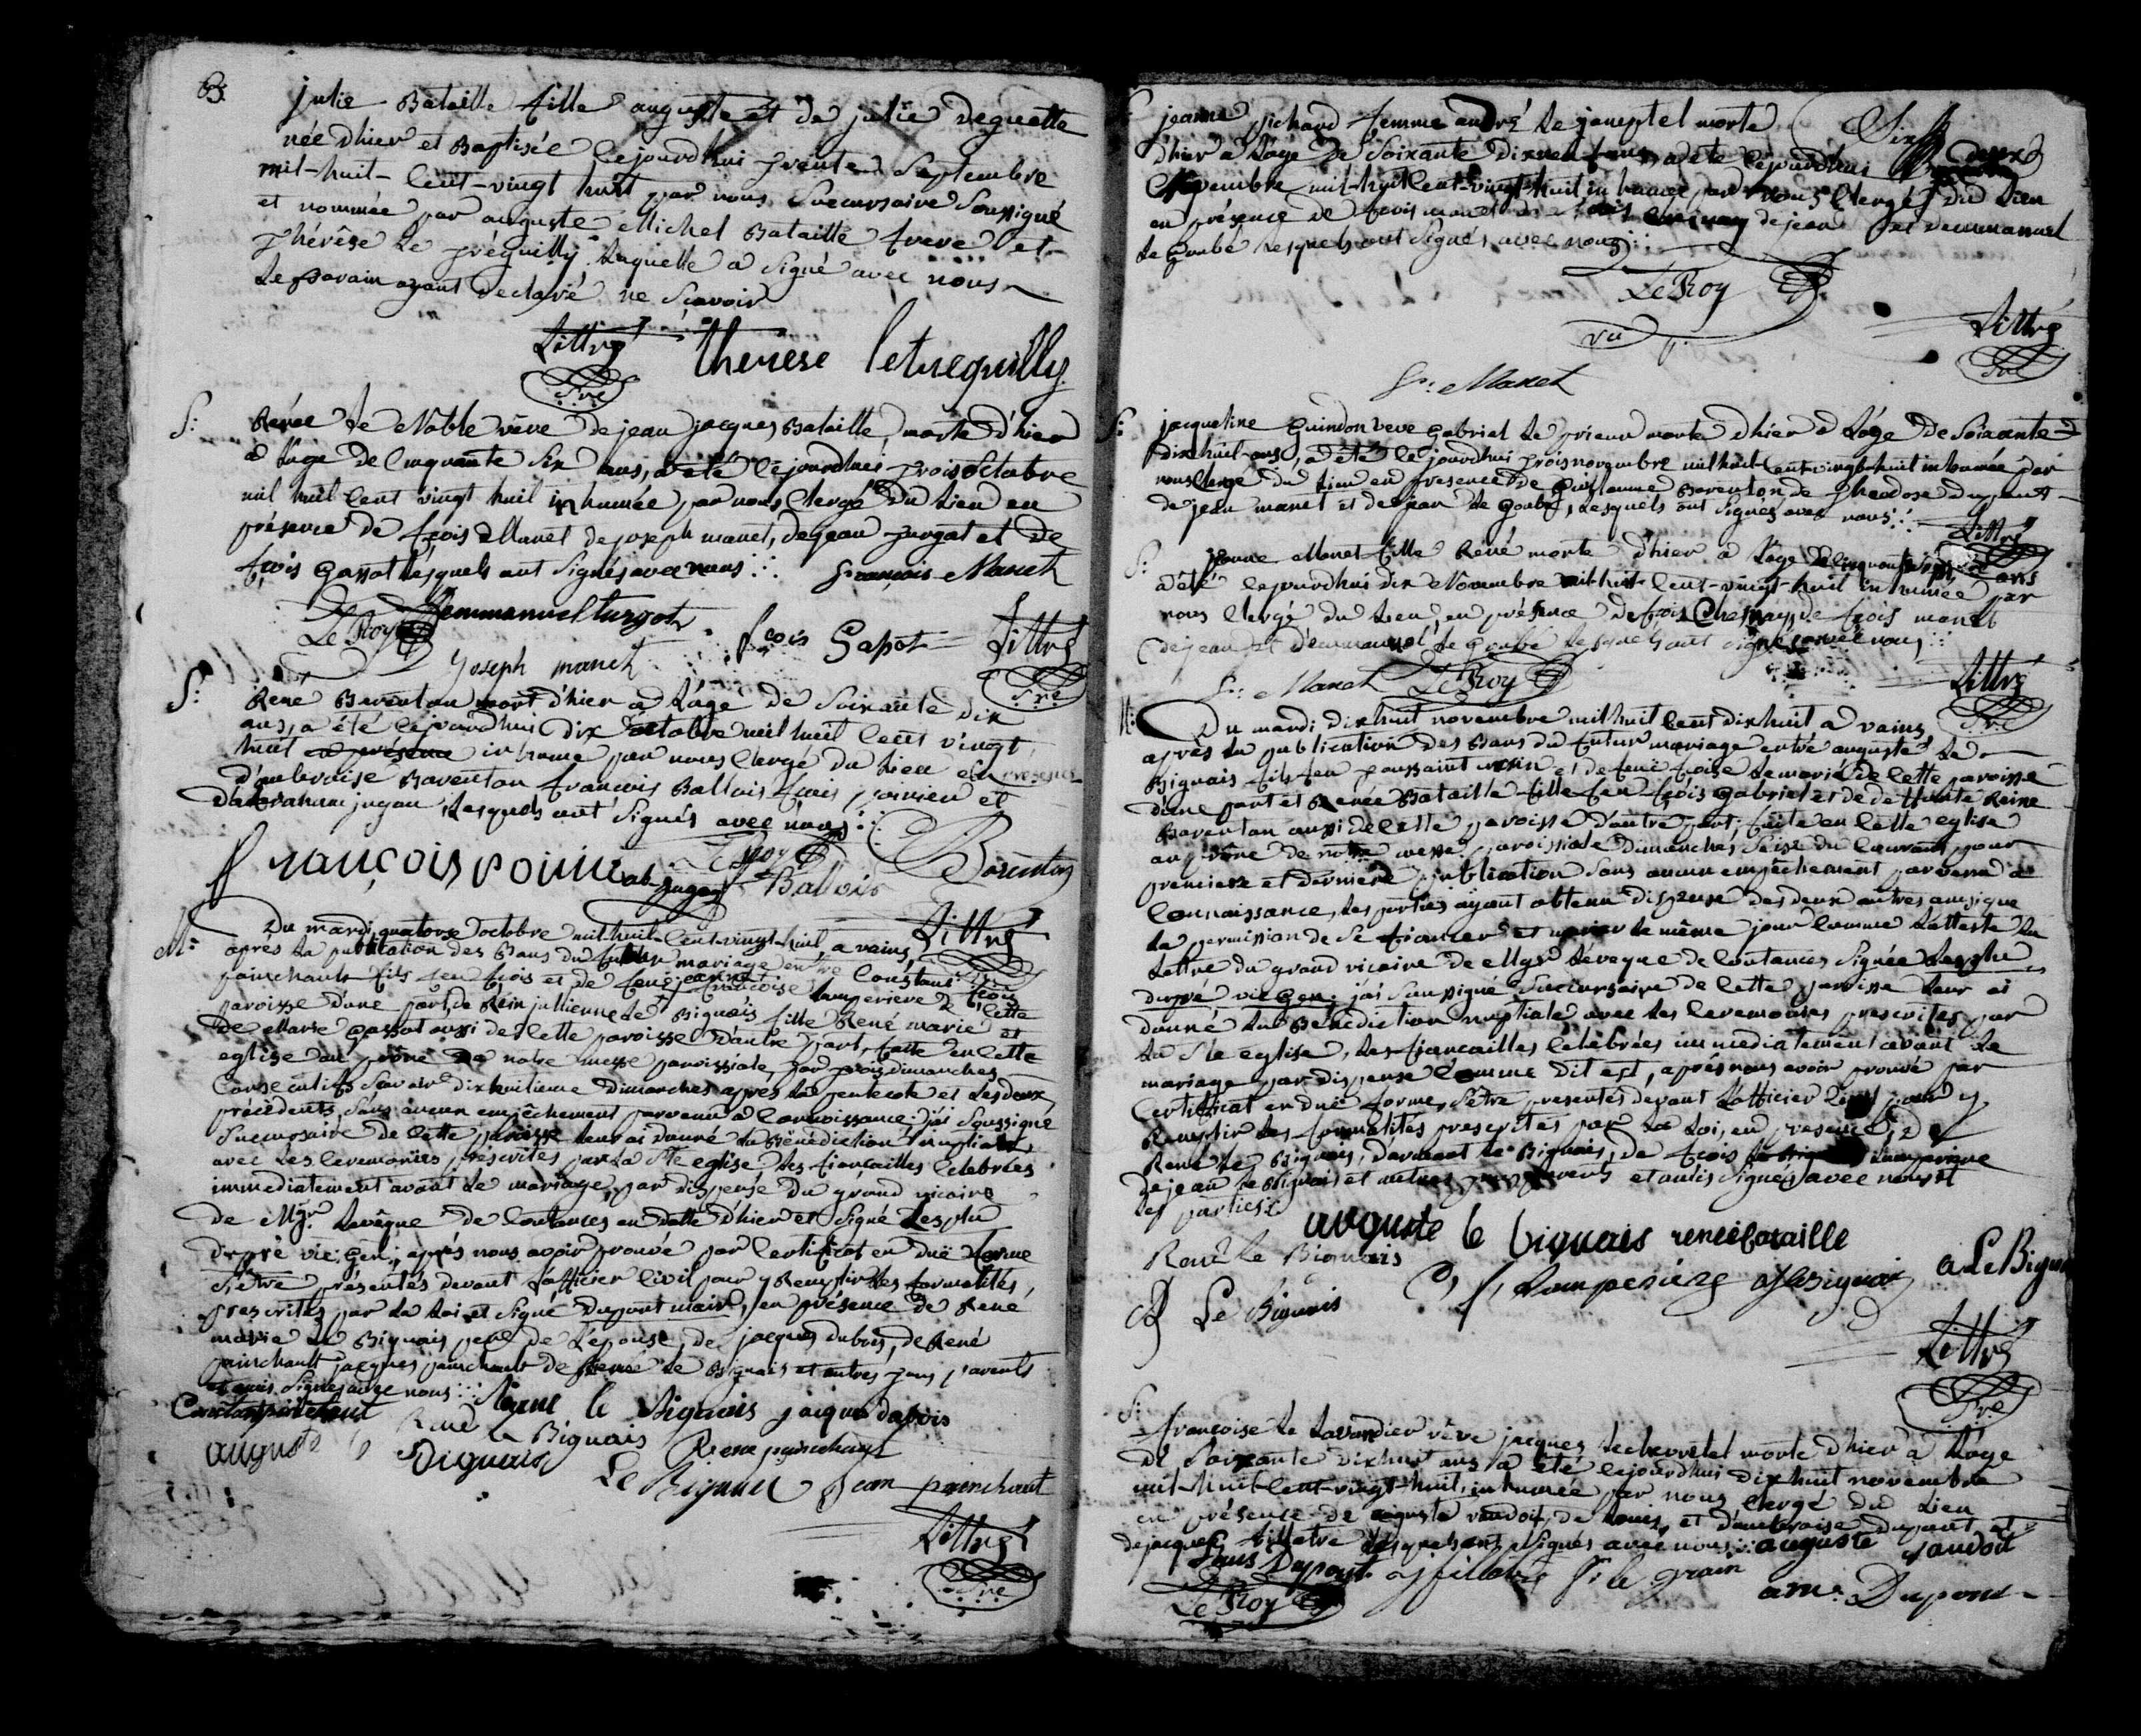 B.
julie Bataille fille auguste et de julie deguette
née d'hier et Baptisée cejourdhui trente Septembre
mil-huit-cent-vingt huit par nous Succursaire Soussigné
et nommée par auguste Michel Bataille frere et
Thérèse Le tréguilly laquelle a signé avec nous
Le parain ayant declaré ne Scavoir
Littré therese letreguilly
Sre
S: Renée Le Noble vêve de jean jacques Bataille, morte d'hier
à l'age de cinquante Six ans, a été cejourdhui trois octobre
mil huit cent vingt huit inhumée par nous clergé du Lieu en
présence de fçois Manet de joseph manet, de jean turgot et de
fçois Gassot lesquels ont Signés avec nous ∴ françois Manet
Le Roy emmanuel turgot
joseph manet fçois Gapot Littré
Sre
S: René Barenton mort d'hier a L'age de Soixante dix
ans, a été cejourdhui dix octobre mil huit cent vingt
huit inhumé par nous clergé du Lieu en presence
d'ambroise Barenton françois Ballois fçois poirier et
d'abraham jugan, Lesquels ont Signés avec nous ∴
françois poirie ab. jugan Le Roy Ballois Barenton
Littré
M: Du mardi quatorse octobre mil-huit-cent-vingt-huit, a vains,
apres la publication des Bans du futur mariage entre Constant fçois
painchault fils feu fçois et de feue jeanne françoise Lamperiere de cette
paroisse d'une part, de Rein jullienne Le Biguais fille René marie et
de Marie Gassot aussi de cette paroisse d'autre part, faite en cette
eglise au prône de notre messe paroissiale, par trois dimanches
consecutifs Savoir dixhuitieme dimanches apres la pentecote et Les deux
précèdents, Sans aucun empêchement parvenu a connoissance; j'ai Soussigné
Succursaire de cette paroisse leur ai donné la Bénédiction nuptiale,
avec Les ceremonies prescrites par la Ste eglise Les fiancailles celebrées
immediatement avant Le mariage, par dispense du grand vicaire
de Mgr. Levêque de Coutances en datte d'hier et Signé Lesplu
dupré vic. Gen., après nous avoir prouvé par certificat en duë forme
S'être présentés devant L'officier civil pour y Remplir les formalités,
prescrites par la Loi et Signé Dupont maire, en présence de René
marie Le Biguais pere de L'epouse, de jacques dubois, de René
painchault jacques painchault de René Le Biguais et autres tous parents
et amis Signés avec nous ∴ Reine le Biguais jacque dubois
Constant painchaut René Le Biguais Rene painchaut
auguste le Biguais Le Biguais jean painchaut
Littré
Sre
S: jeanne pichard femme andré Le jamptel morte
d'hier a L'age de Soixante dix a été cejourdhui deux
novembre mil-huit cent-vingt-huit inhumée par nous clergé du Lieu
en présence de fçois manet de fçois de jean et demmanuel
Le Goubé lesquels ont Signés avec nous ∴
Le Roy
vu Littré
Sre
fr: Manet
S: jacqueline Guindon veve Gabriel Le prieur morte d'hier à L'age de Soixante
dixhuit-ans, a été cejourdhui trois novembre mil huit cent vingt-huit inhumée par
nous clergé du Lieu en presence de Guillaume Barenton de Theodose dupont
de jean manet et de jean Le Goubé, Lesquels ont Signés avec nous ∴
Littré
S: Jeanne Manet fille René morte d'hier a L'age de cinquante ans
a été cejourdhui dix Novembre mil-huit-cent-vingt-huit inhumée par
nous clergé du Lieu, en présence de fçois Chesnay, de fçois manet
de jean et d'emmanuel Le Goubé Lesquels ont Signés avec nous ∴
fr: Manet Le Roy Littré
Sre
M: Du mardi dixhuit novembre mil huit cent dixhuit a vains,
après la publication des Bans du futur mariage entre auguste Le
Biguais fils feu toussaint et de feue fçoise Lemarié de cette paroisse
d'une part et Renée Bataille fille feu fçois Gabriel et de deffunte Reine
Barenton aussi de cette paroisse d'autre part, faite en cette eglise
au prône de notre messe paroissiale dimanches Seize du courant pour
premiere et derniere publication Sans aucun empêchement parvenu à
connaissance, Les parties ayant obtenu dispense des deux autres ainsi que
la permission de Se fiancer et marier le même jour comme L'atteste La
Lettre du grand vicaire de Mgr Léveque de Coutances Signée Lesplu
dupré vic. Gen. j'ai Soussigné Succursaire de cette paroisse leur ai
donné La Bénédiction nuptiale avec Les ceremonies prescrites par
La Ste eglise, Les fiancailles célébrées immediatement avant Le
mariage par dispense comme dit est, après nous avoir prouvé par
certificat en duë forme, S'être presentés devant L'officier civil pour y
Remplir Les formalités prescrites par La Loi, en presence de
René Le Biguais, d'armant Le Biguais, de fçois Lamperiere
de jean Le Biguais et autres parents et amis Signés avec nous et
Les parties ∴
auguste le biguais renée bataille
René Le Biguais f, Lamperière a Le Biguais
Le Biguais
Littré
Sre
S: françoise Le Lavandier vêve jacques Lechevretel morte d'hier à L'age
de Soixante dixhuit ans a été cejourdhui dixhuit novembre
mil-huit-cent-vingt-huit, inhumée par nous clergé du Lieu
en présence de auguste vaudoit, de Louis et d'ambroise dupont et
de jacques fillatre Lesquels ont Signés avec nous ∴ auguste vaudoit
Louis Dupont fillatre le grain
Le Roy am: Dupont